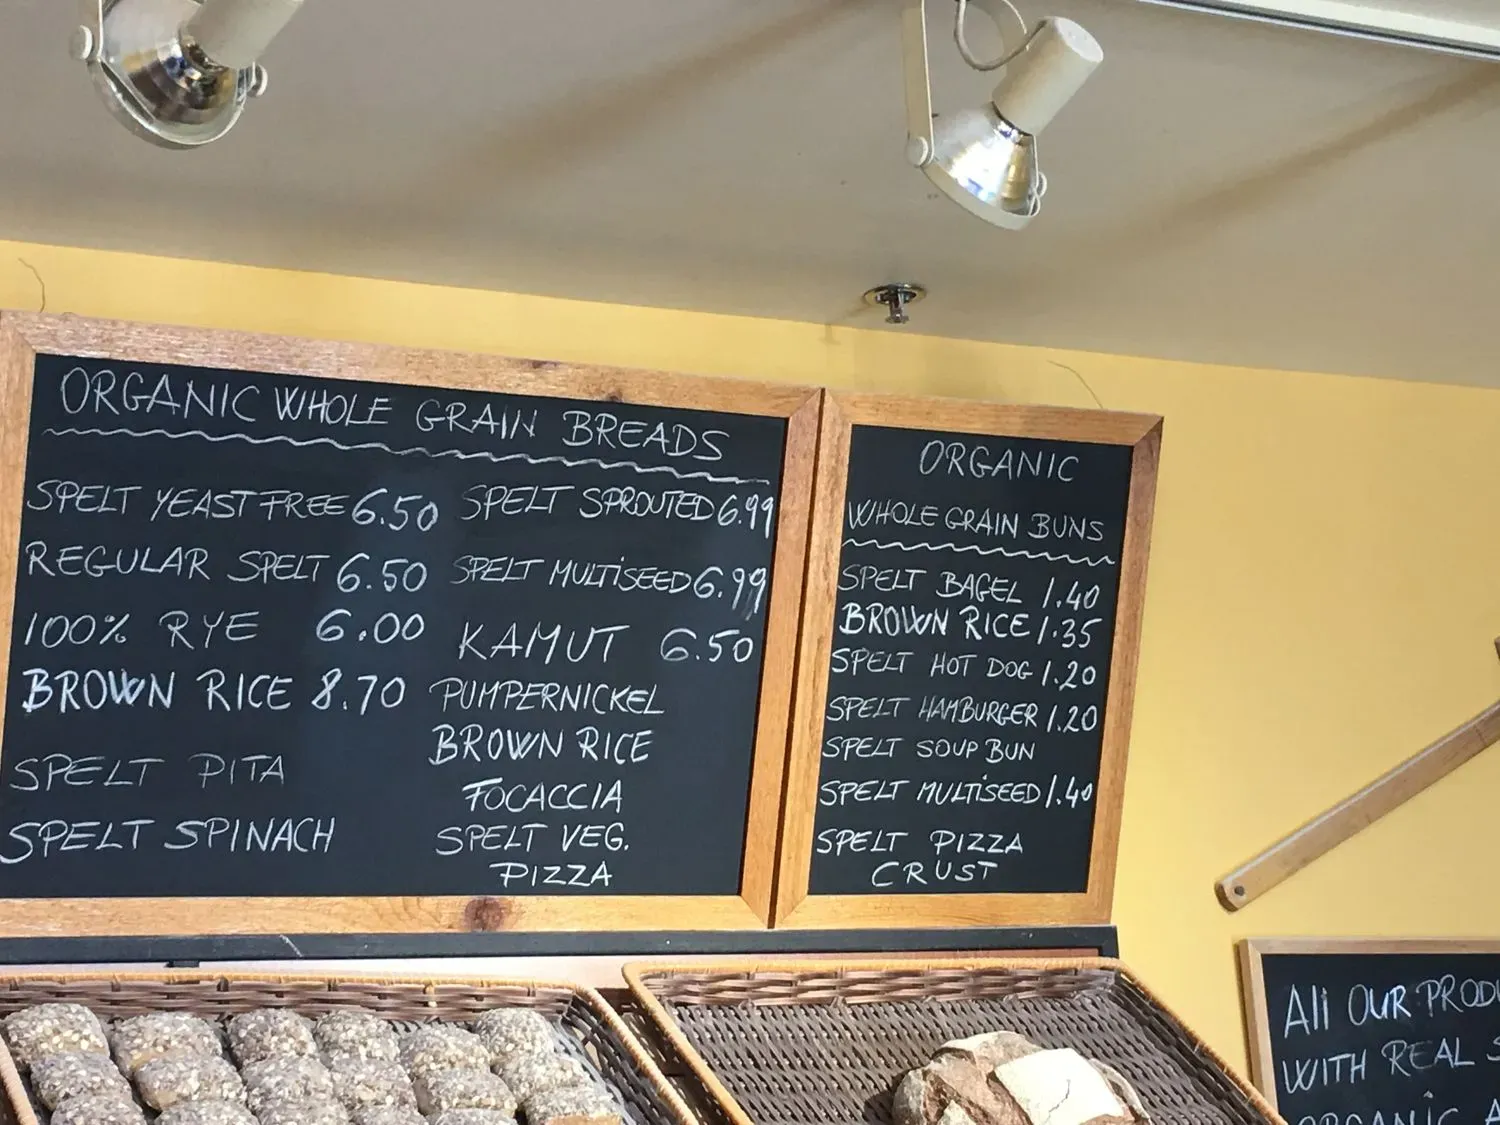 ORGANIC WHOLE GRAIN BREADS
SPELT YEAST FREE 6.50
REGULAR SPELT 6.50
100% RYE 6.00
BROWN RICE 8.70
SPELT PITA
SPELT SPINACH
SPELT SPROUTED 6.99
SPELT MULTISEED 6.99
KAMUT 6.50
PUMPERNICKEL
BROWN RICE
FOCACCIA
SPELT VEG.
PIZZA
ORGANIC
WHOLE GRAIN BUNS
SPELT BAGEL 1.40
BROWN RICE 1.35
SPELT HOT DOG 1.20
SPELT HAMBURGER 1.20
SPELT SOUP BUN
SPELT MULTISEED 1.40
SPELT PIZZA
CRUST
All OUR
WITH REAL
ORGANIC